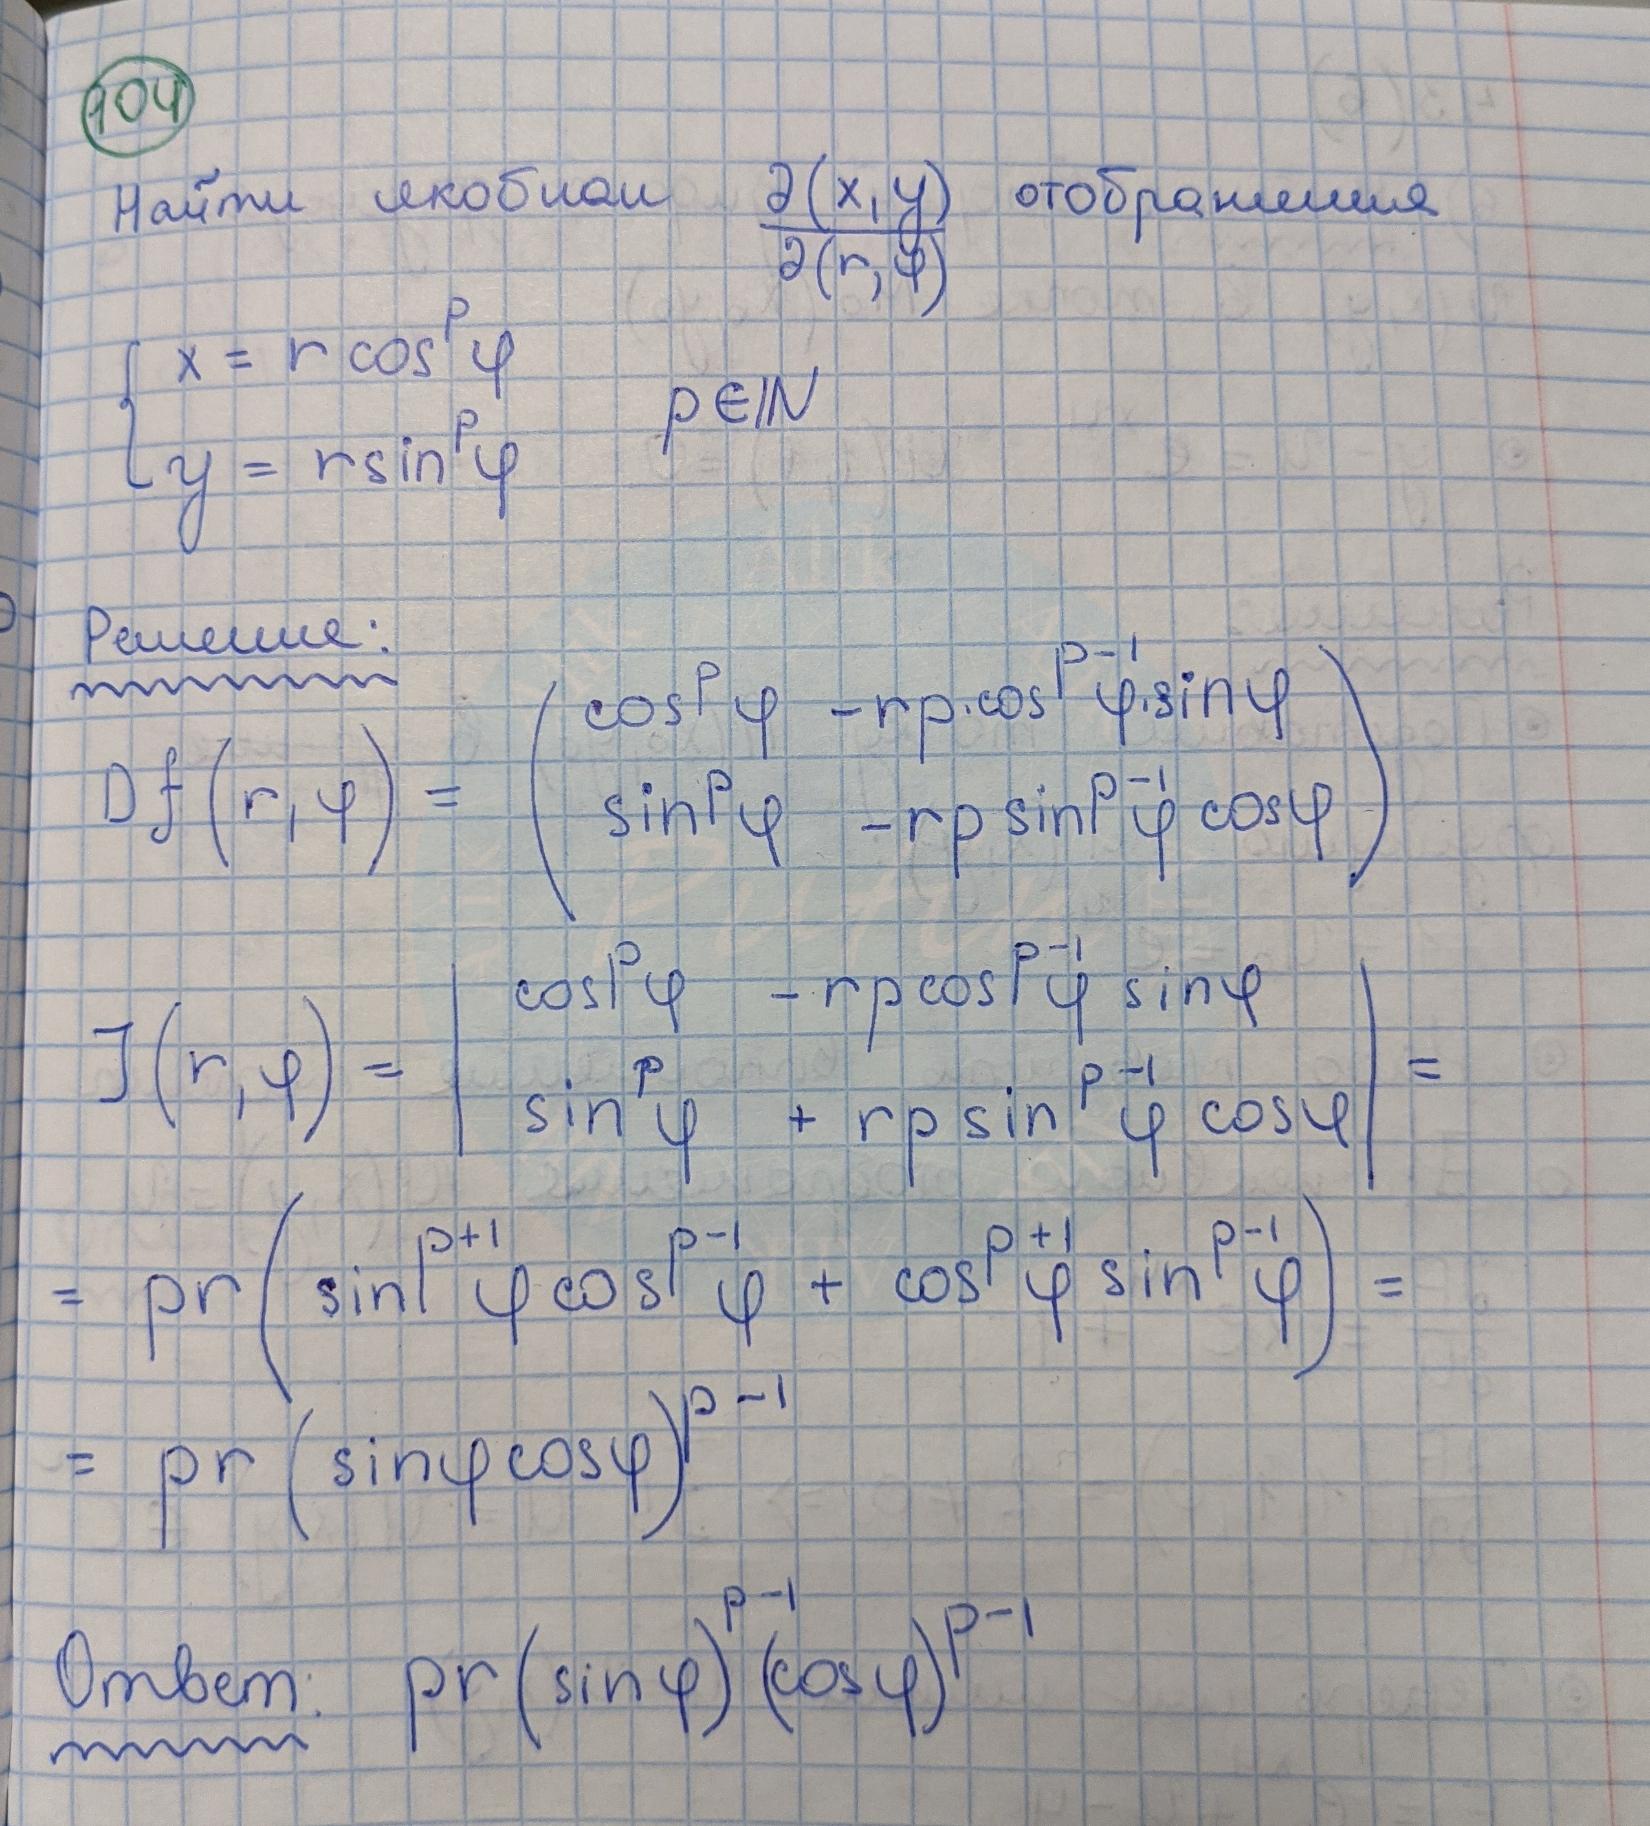 104
Найти якобиан ∂(x,y)/∂(r,φ) отображения
{ x = r cos^p φ
{ y = r sin^p φ p∈ℕ
Решение:
Df(r,φ) = ( cos^p φ -rp·cos^{p-1} φ·sin φ
sin^p φ -rp sin^{p-1} φ cos φ )
J(r,φ) = | cos^p φ -rp cos^{p-1} φ sin φ
sin^p φ + rp sin^{p-1} φ cos φ | =
= pr( sin^{p+1} φ cos^{p-1} φ + cos^{p+1} φ sin^{p-1} φ ) =
= pr (sin φ cos φ)^{p-1}
Ответ: pr (sin φ)^{p-1} (cos φ)^{p-1}